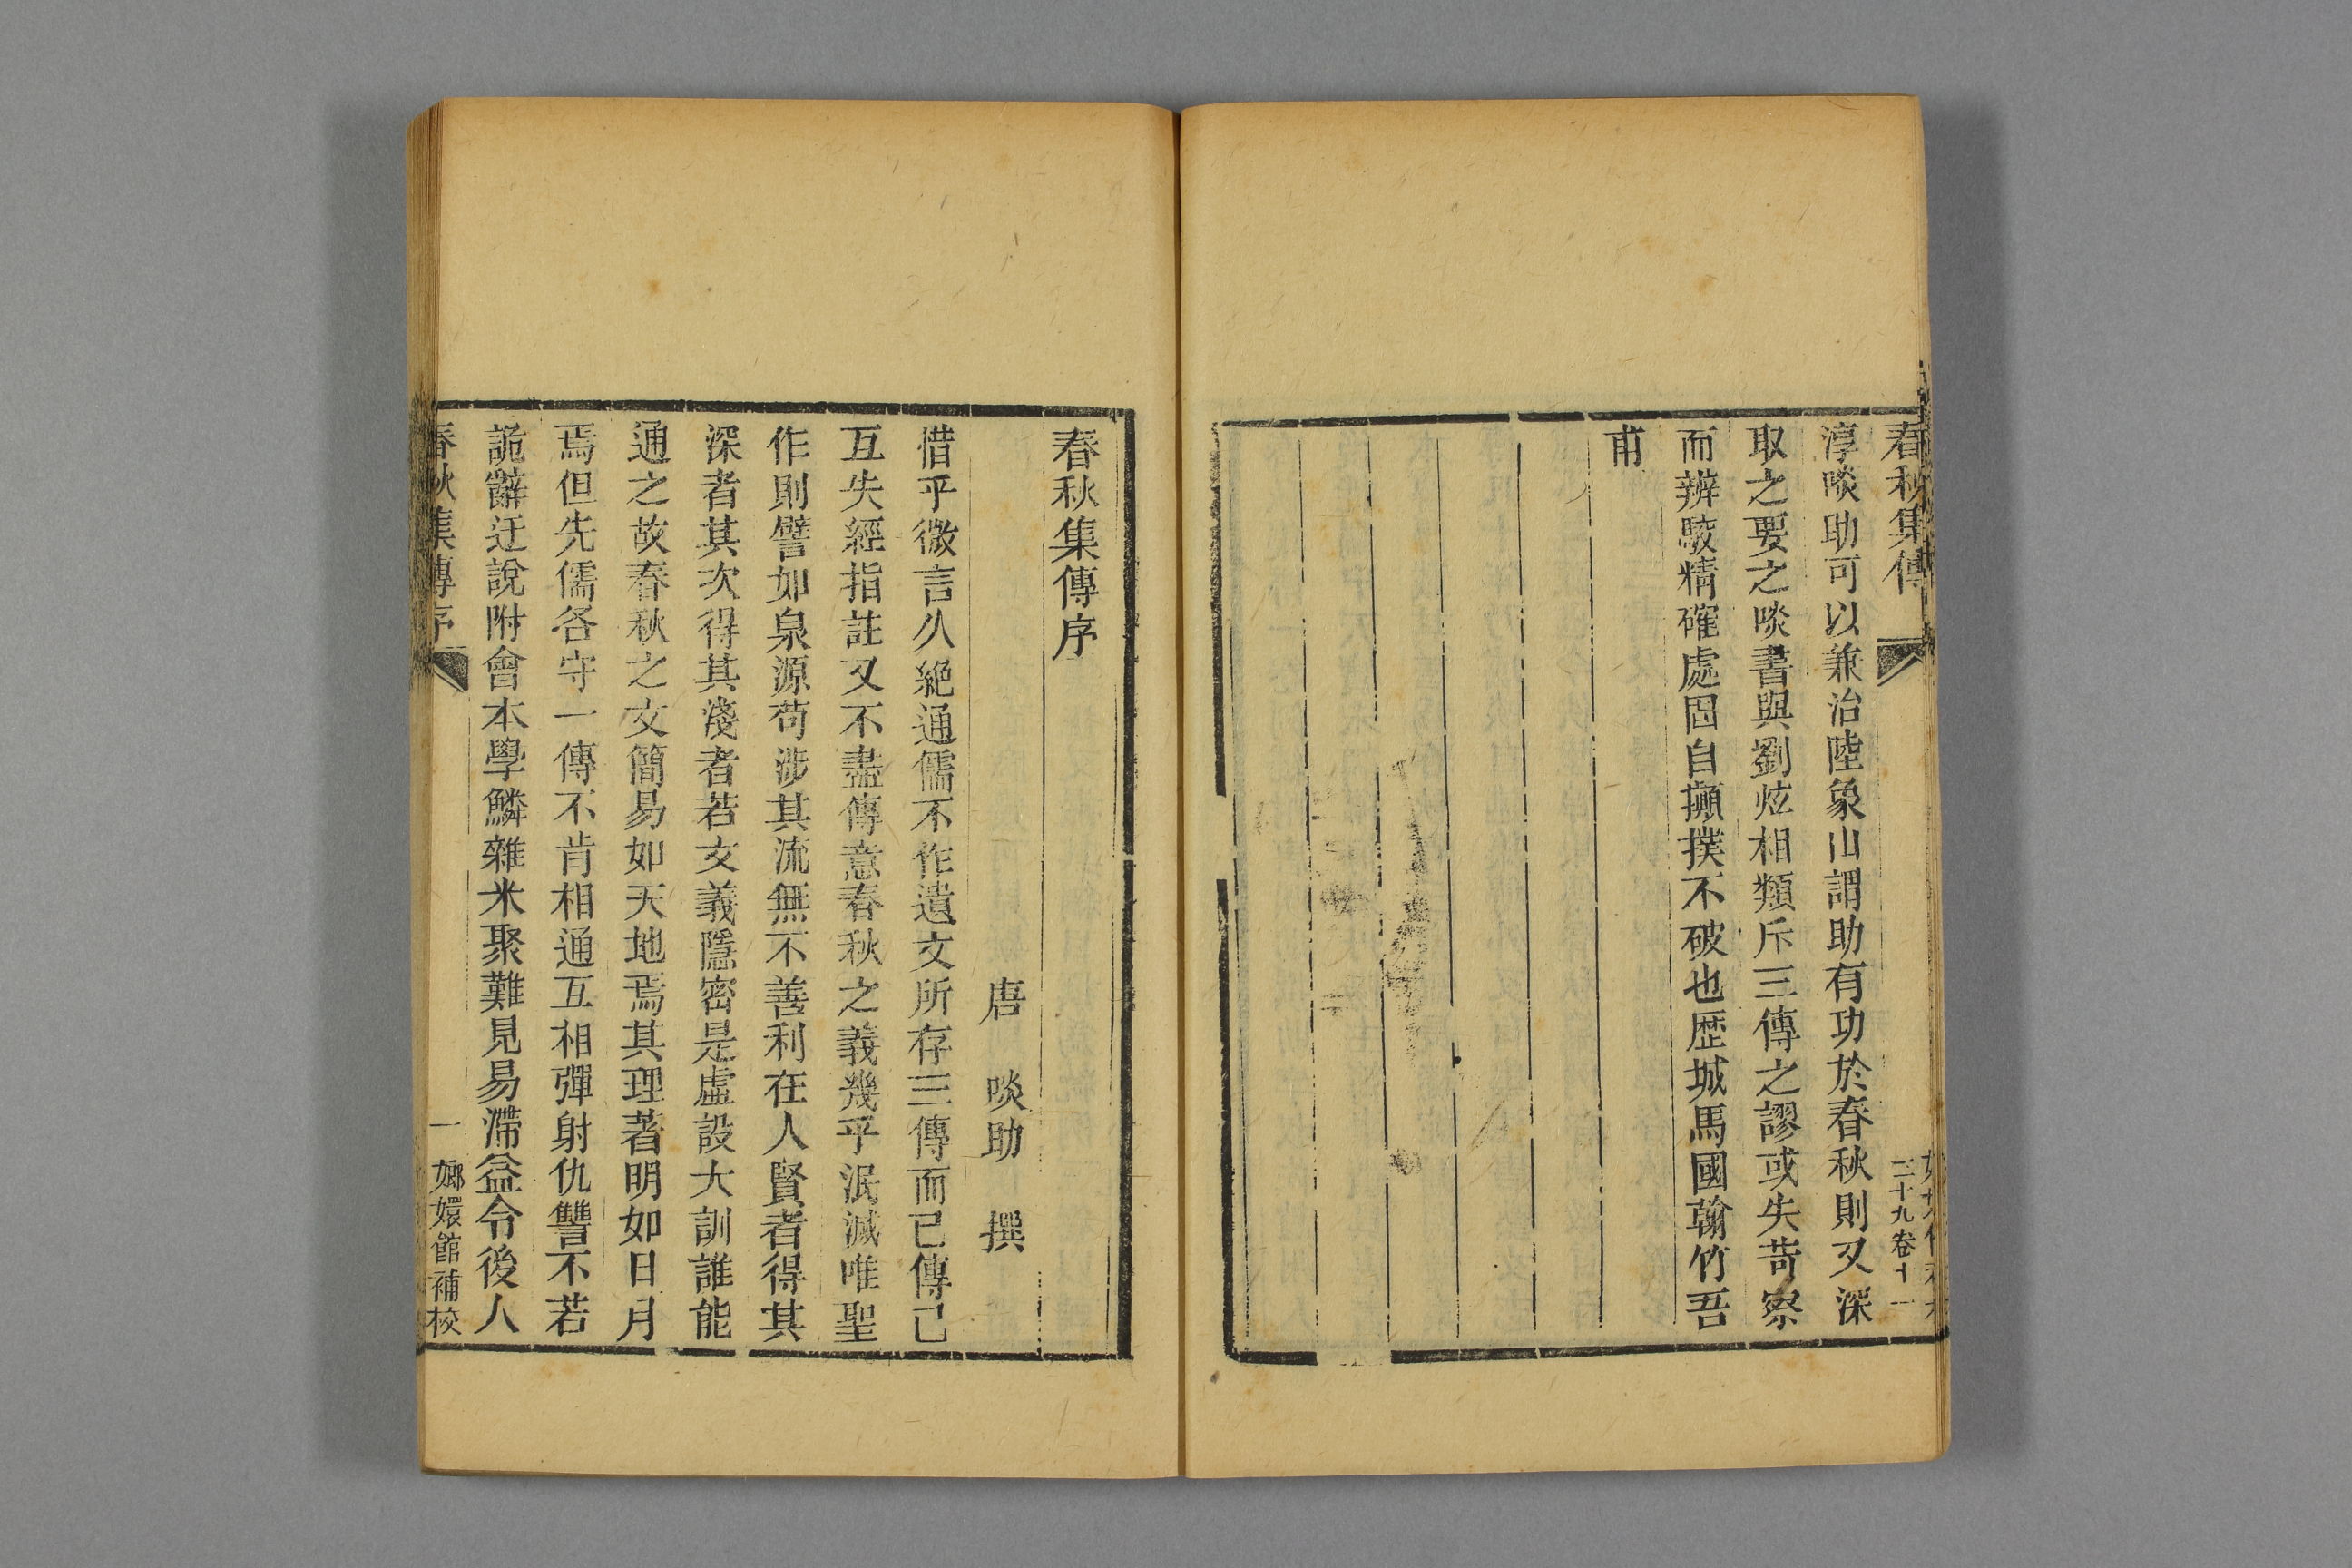 春秋集傳
三十九卷十一
淳啖助可以兼治陸象山謂助有功於春秋則又深
取之要之啖書與劉炫相類斥三傳之謬或失苛察
而辨駮精確處固自攧撲不破也歷城馬國翰竹吾
甫
春秋集傳序
唐 啖助 撰
惜乎微言久絕通儒不作遺文所存三傳而已傳已
互失經指註又不盡傳意春秋之義幾乎泯滅唯聖
作則譬如泉源苟涉其流無不善利在人賢者得其
深者其次得其淺者若文義隱密是虛設大訓誰能
通之故春秋之文簡易如天地焉其理著明如日月
焉但先儒各守一傳不肯相通互相彈射仇讐不若
詭辭迂說附會本學鱗雜米聚難見易滯益令後人
春秋集傳序
一
嫏嬛館補校